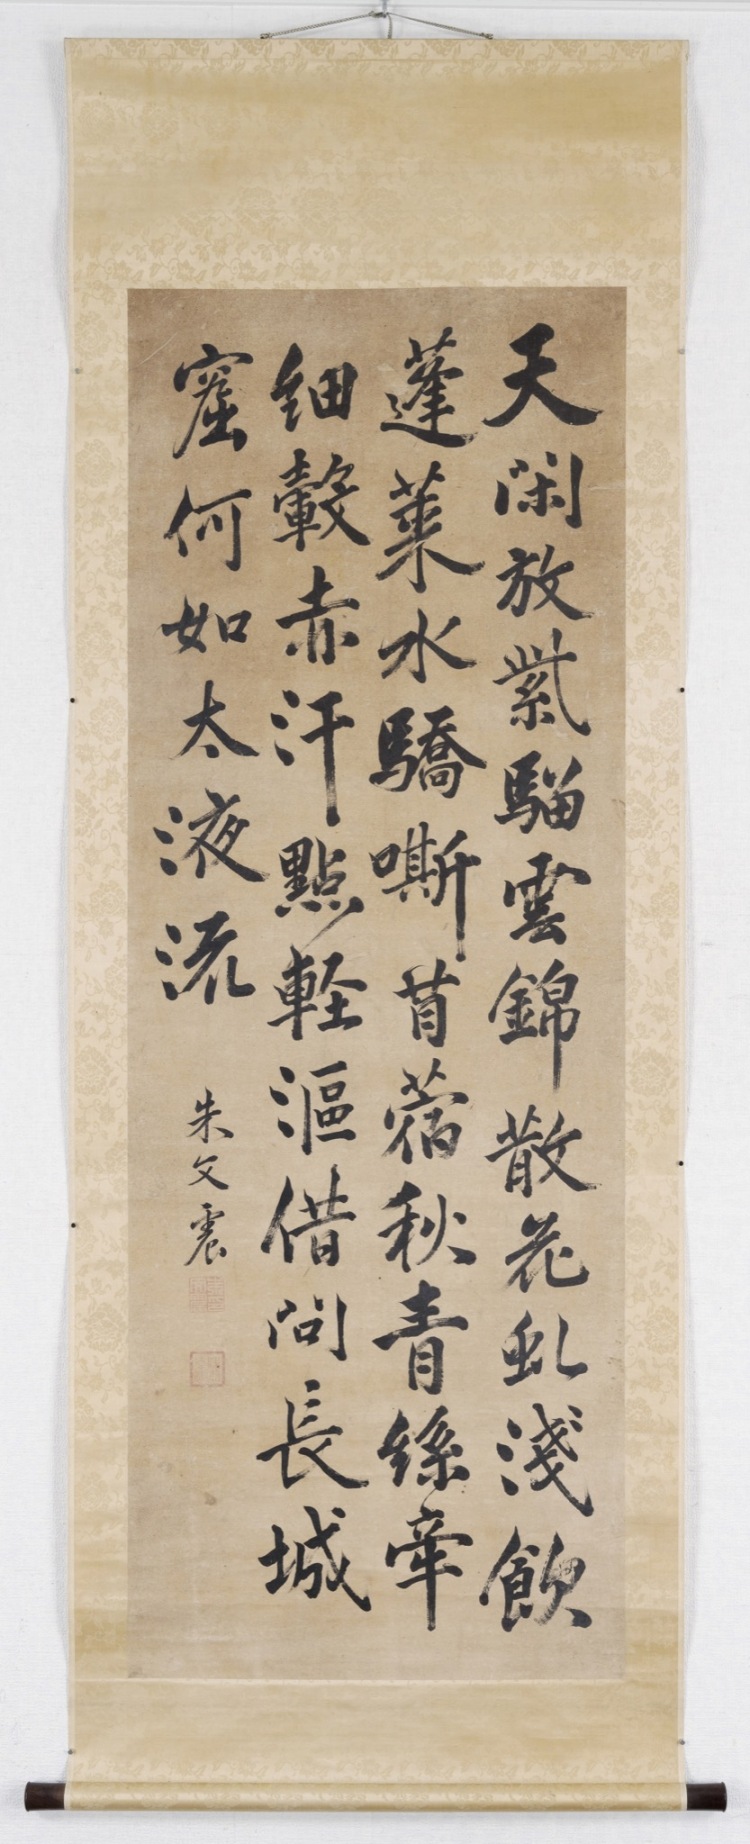 天閑放紫騮雲錦散花虬淺飲
蓬萊水驕嘶苜蓿秋青絲牽
細轂赤汗點輕漚借問長城
窟何如太液流
朱文震